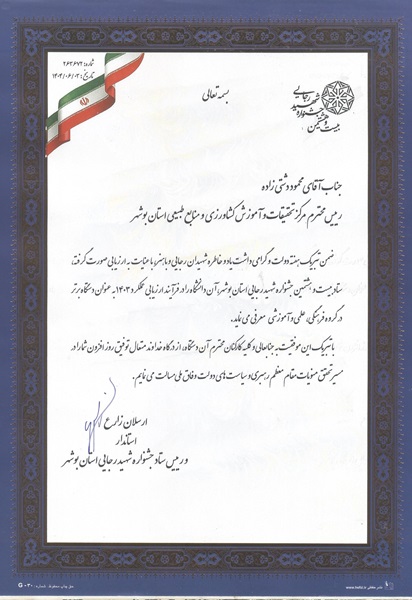 شماره: ۲۶۳۶۷۲
تاریخ: ۱۴۰۴/۰۶/۰۲
بسمه تعالی
بیست و هشتمین
جشنواره
شهید
رجایی
جناب آقای محمود دشتی زاده
رییس محترم مرکز تحقیقات و آموزش کشاورزی و منابع طبیعی استان بوشهر
ضمن تبریک هفته دولت و گرامی داشت یاد و خاطره شهیدان رجایی و باهنر، با عنایت به ارزیابی صورت گرفته
ستاد بیست و هشتمین جشنواره شهید رجایی استان بوشهر، آن دانشگاه را در فرآیند ارزیابی عملکرد ۱۴۰۳ به عنوان دستگاه برتر
در گروه فرهنگی، علمی و آموزشی معرفی می نماید.
با تبریک این موفقیت به جنابعالی و کلیه کارکنان محترم آن دستگاه، از درگاه خداوند متعال توفیق روز افزون شما را در
مسیر تحقق منویات مقام معظم رهبری و سیاست های دولت وفاق ملی مسألت می نمایم.
ارسلان زارع
استاندار
و رییس ستاد جشنواره شهید رجایی استان بوشهر